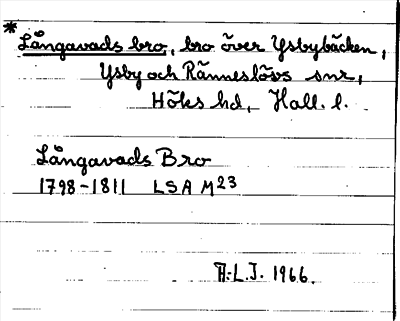 *Långavads bro, bro över Ysbybäcken,
Ysby och Ränneslövs snr,
Höks hd, Hall. l.
Långavads Bro
1798-1811 LSA M23
A.L.J. 1966.